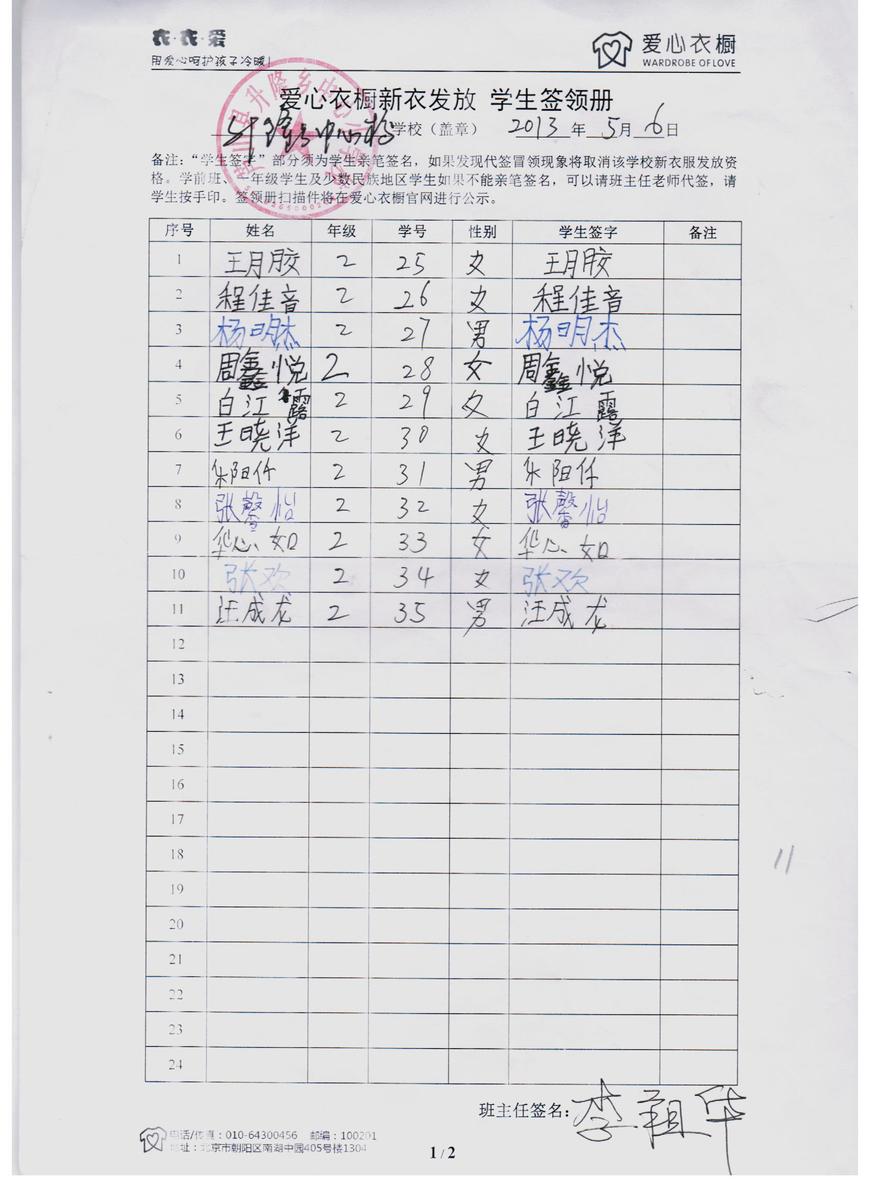 衣·衣·爱
用爱心呵护孩子冷暖!
爱心衣橱
WARDROBE OF LOVE
爱心衣橱新衣发放 学生签领册
升隆乡中心校学校（盖章） 2013 年 5月 6日
备注：“学生签字”部分须为学生亲笔签名，如果发现代签冒领现象将取消该学校新衣服发放资
格。学前班、一年级学生及少数民族地区学生如果不能亲笔签名，可以请班主任老师代签，请
学生按手印。签领册扫描件将在爱心衣橱官网进行公示。
序号 姓名 年级 学号 性别 学生签字 备注
1 王月胶 2 25 女 王月胶
2 程佳音 2 26 女 程佳音
3 杨明杰 2 27 男 杨明杰
4 周鑫悦 2 28 女 周鑫悦
5 白江露 2 29 女 白江露
6 王晓洋 2 30 女 王晓洋
7 朱阳仟 2 31 男 朱阳仟
8 张馨怡 2 32 女 张馨怡
9 华心如 2 33 女 华心如
10 张欢 2 34 女 张欢
11 汪成龙 2 35 男 汪成龙
12
13
14
15
16
17
18
19
20
21
22
23
24
11
班主任签名：李祖华
电话/传真：010-64300456 邮编：100201
地址：北京市朝阳区南湖中园405号楼1304
1 / 2